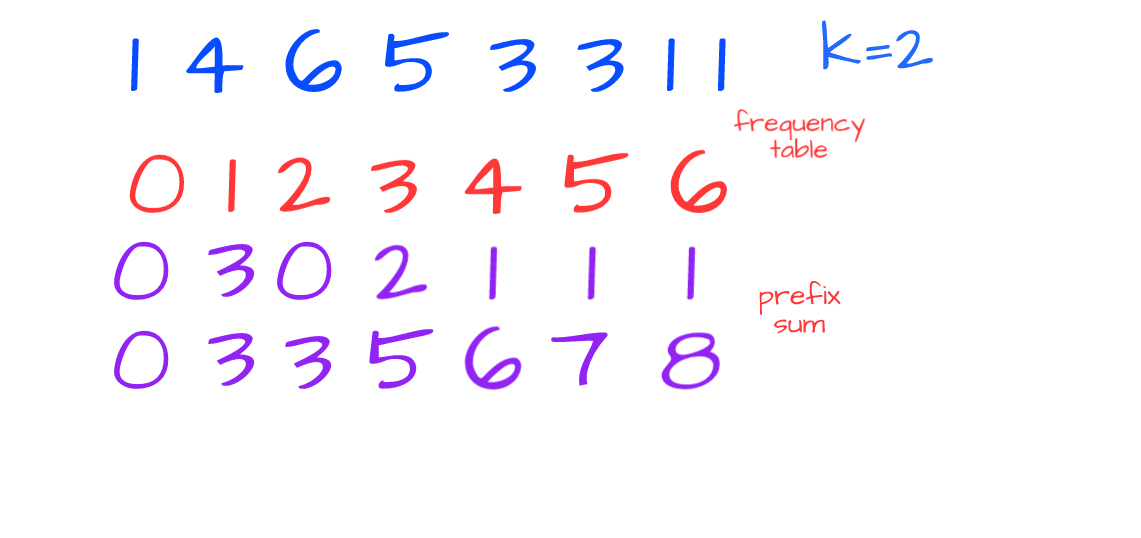 1 4 6 5 3 3 1 1
k=2
frequency
table
0 1 2 3 4 5 6
0 3 0 2 1 1 1
prefix
sum
0 3 3 5 6 7 8